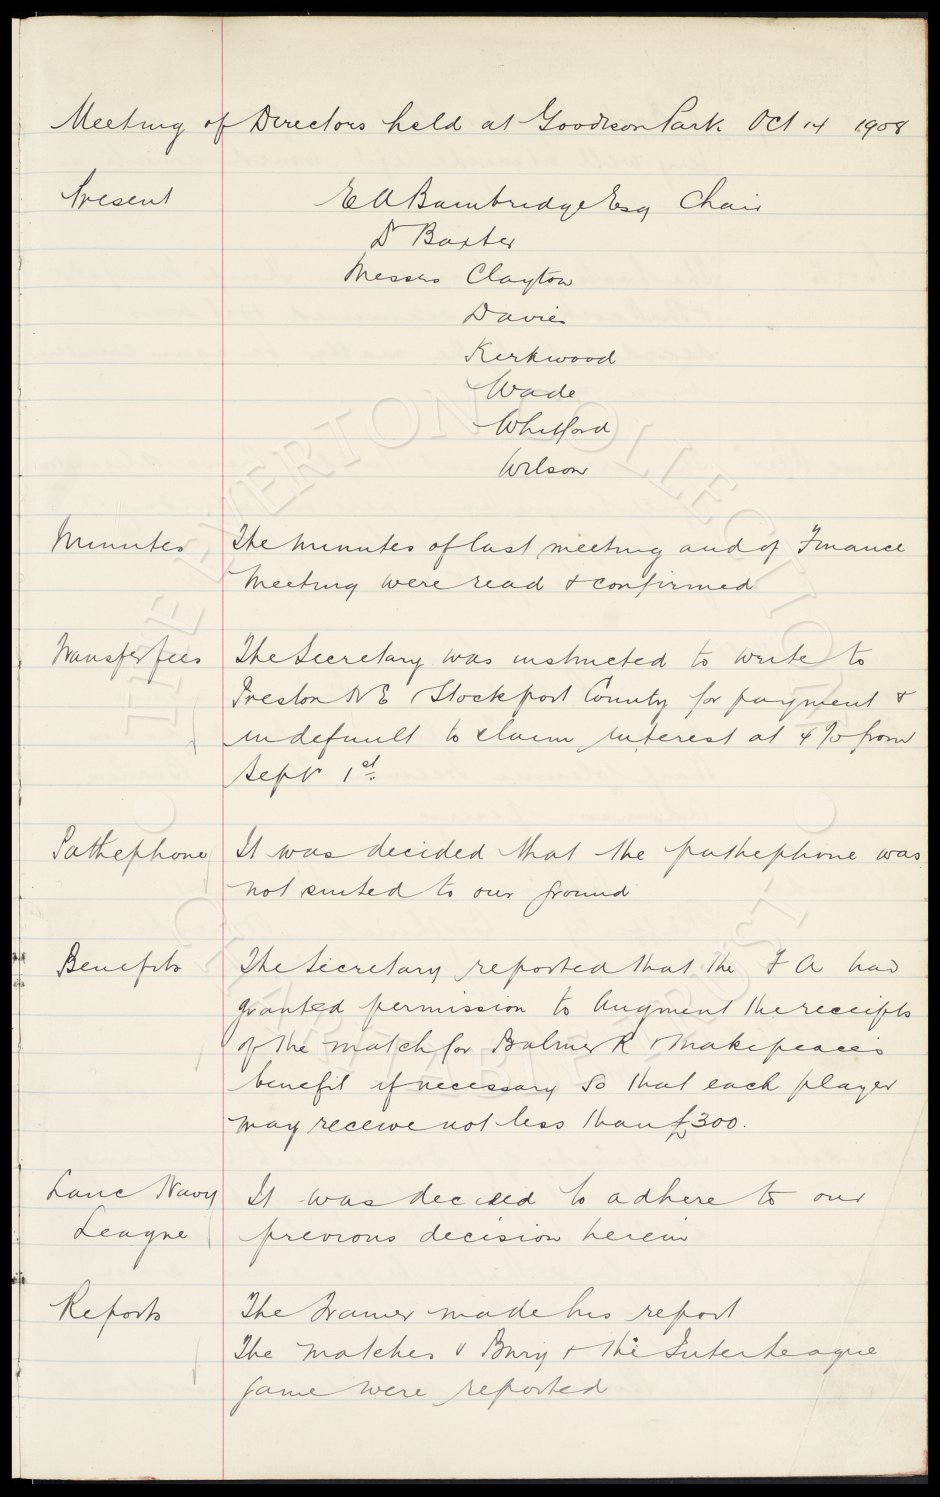 Meeting of Directors held at Goodison Park Oct 14 1908
Present E A Bainbridge Esq Chair
Dr Baxter
Messrs Clayton
Davies
Kirkwood
Wade
Whitford
Wilson
Minutes The minutes of last meeting and of Finance
Meeting were read & confirmed
Transfer fees The Secretary was instructed to write to
Preston N E & Stockport County for payment &
in default to claim interest at 4 % from
Sept 1st.
Pathephone It was decided that the pathephone was
not suited to our ground
Benefits The Secretary reported that the F A had
granted permission to augment the receipts
of the match for Balmer R & Makepeace's
benefit if necessary so that each player
may receive not less than £300.
Lanc Navy It was decided to adhere to our
League previous decision herein
Reports The Trainer made his report
The matches v Bury & the Inter League
game were reported
THE EVERTON COLLECTION
CHARITABLE TRUST